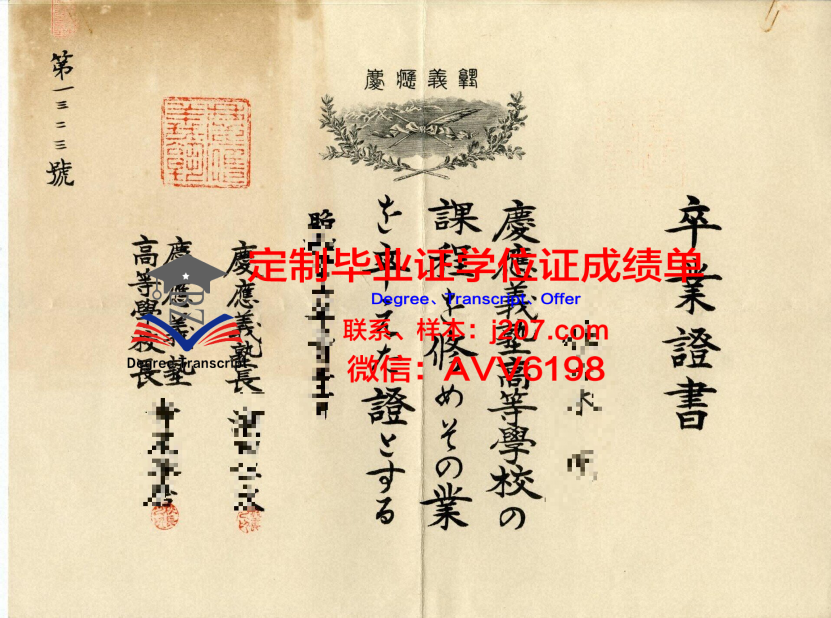 慶應義塾
卒業證書
慶應義塾高等學校の
課程を修めその業
を卒えた證とする
慶應義塾長
慶應義塾
高等學校長
第一三二三號
定制毕业证学位证成绩单
Degree、Transcript、Offer
联系、样本：j207.com
微信：AVV6198
DZ
Degree Transcript